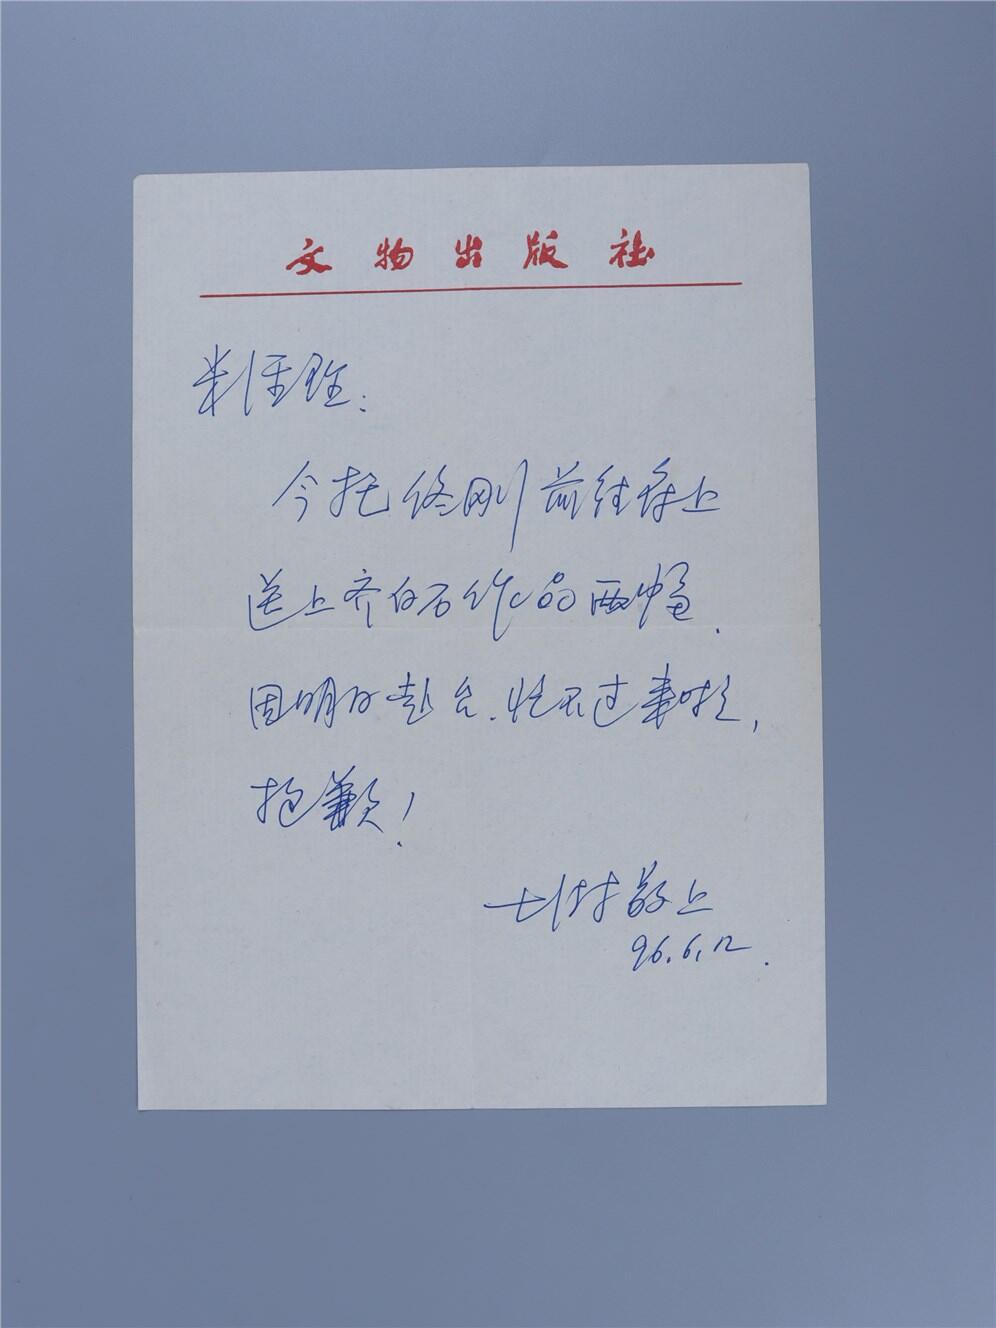 文物出版社
米经理：
今托佟刚前往府上
送上齐白石作品两幅．
因明日赴台．忙不过来啦，
抱歉！
敬上
96.6.12．